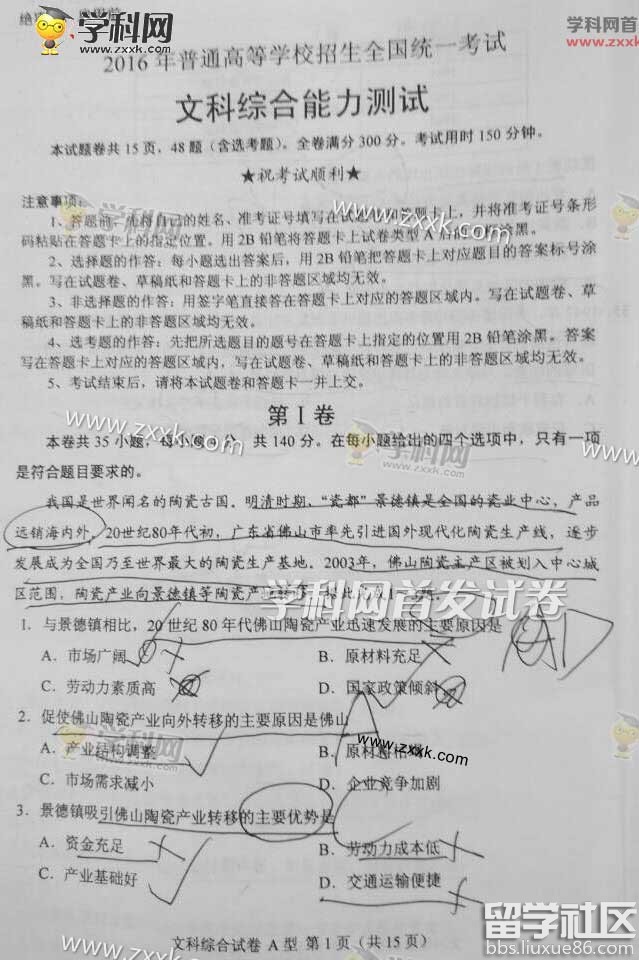 绝
学科网
www.zxxk.com
学科网
www.zxxk.
2016年普通高等学校招生全国统一考试
文科综合能力测试
本试题卷共15页，48题（含选考题）。全卷满分300分。考试用时150分钟。
★祝考试顺利★
注意事项：
学科网
www.zxxk.com
1、答题前，先将自己的姓名、准考证号填写在试题卷和答题卡上，并将准考证号条形
码粘贴在答题卡上的指定位置。用2B铅笔将答题卡上试卷类型A后的方框涂黑。
2、选择题的作答：每小题选出答案后，用2B铅笔把答题卡上对应题目的答案标号涂
黑。写在试题卷、草稿纸和答题卡上的非答题区域均无效。
3、非选择题的作答：用签字笔直接答在答题卡上对应的答题区域内。写在试题卷、草
稿纸和答题卡上的非答题区域均无效。
4、选考题的作答：先把所选题目的题号在答题卡上指定的位置用2B铅笔涂黑。答案
写在答题卡上对应的答题区域内，写在试题卷、草稿纸和答题卡上的非答题区域均无效。
5、考试结束后，请将本试题卷和答题卡一并上交。
第Ⅰ卷
www.zxxk.com
本卷共35小题，每小题 分，共140分。在每小题给出的四个选项中，只有一项
学科网
zxxk.com
www.zx
是符合题目要求的。
我国是世界闻名的陶瓷古国。明清时期，“瓷都”景德镇是全国的瓷业中心，产品
远销海内外。20世纪80年代初，广东省佛山市率先引进国外现代化陶瓷生产线，逐步
发展成为全国乃至世界最大的陶瓷生产基地。2003年，佛山陶瓷主产区被划入中心城
区范围，陶瓷产业向景德镇等陶瓷产业转移。据此完成1～3题。
学科网首发试卷
1．与景德镇相比，20世纪80年代佛山陶瓷产业迅速发展的主要原因是
A．市场广阔
B．原材料充足
C．劳动力素质高
D．国家政策倾斜
2．促使佛山陶瓷产业向外转移的主要原因是佛山
学科网
A．产业结构调整
B．原材料枯
www.zxxk.com
C．市场需求减小
D．企业竞争加剧
3．景德镇吸引佛山陶瓷产业转移的主要优势是
A．资金充足
B．劳动力成本低
C．产业基础好
D．交通运输便捷
文科综合试卷 A型 第1页（共15页）
www.zxxk.com
留学社区
bbs.liuxue86.com